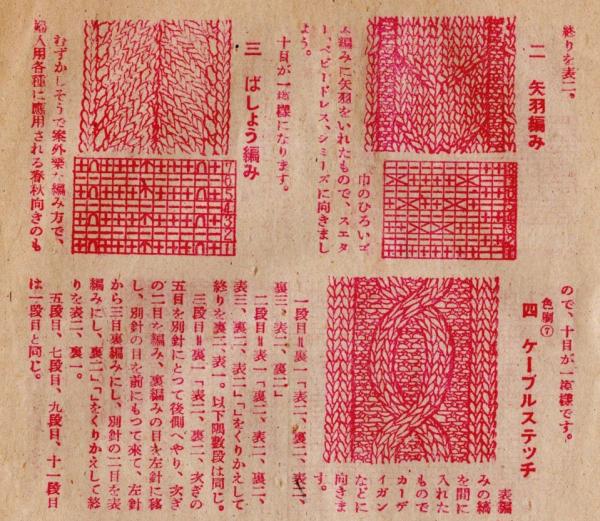 終りを表二、
二 矢羽編み
巾のひろいゴ
ム編みに矢羽をいれたもので、スエタ
ー、ベビードレス、シミーズに向きまし
よう。
十目が一模様になります。
三 ばしょう編み
むずかしそうで案外楽な編み方で、
婦人用各種に應用される春秋向きのも
ので、十目が一模様です。
色刷⑦
四 ケーブルステッチ
表編
みの縞
を間に
入れた
もので
カーデ
イガン
などに
向きま
す。
一段目=裏一「表二、裏二、表二、
裏三、表二、裏二」
二段目=表一「裏二、表二、裏二、
表三、裏二、表二」「」をくりかえして
終りを裏二表一。以下偶數段は同じ。
三段目=裏一「表二、裏二、次ぎの
五目を別針にとつて後側へやり、次ぎ
の二目を編み、裏編みの目を左針に移
し、別針の目を前にもつて來て、左針
から三目裏編みにし、別針の二目を表
編みにし、裏二」「」をくりかえして終
りを表二、裏一。
五段目、七段目、九段目、十一段目
は一段目と同じ。